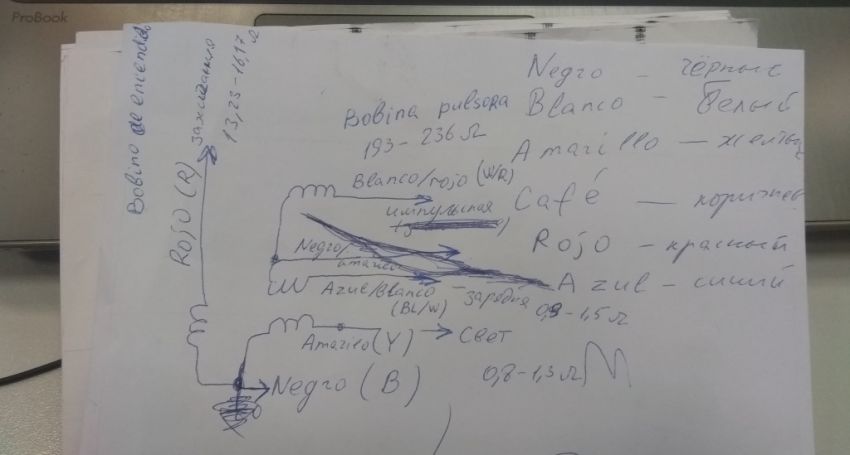 ProBook
Bobino de encendido
зажигания
13,23 - 16,17 Ω
Rojo (R)
Bobina pulsora
193 - 236 Ω
Blanco/rojo (W/R)
импульсная
Negro/
amarilo
Azul/Blanco - зарядня
(BL/W)
0,9 - 1,5 Ω
Amarilo (Y) → Свет
0,8 - 1,3 Ω
Negro (B)
Negro - чёрный
Blanco - Белый
Amarillo - желты
Café - коричнев
Rojo - красный
Azul - синий